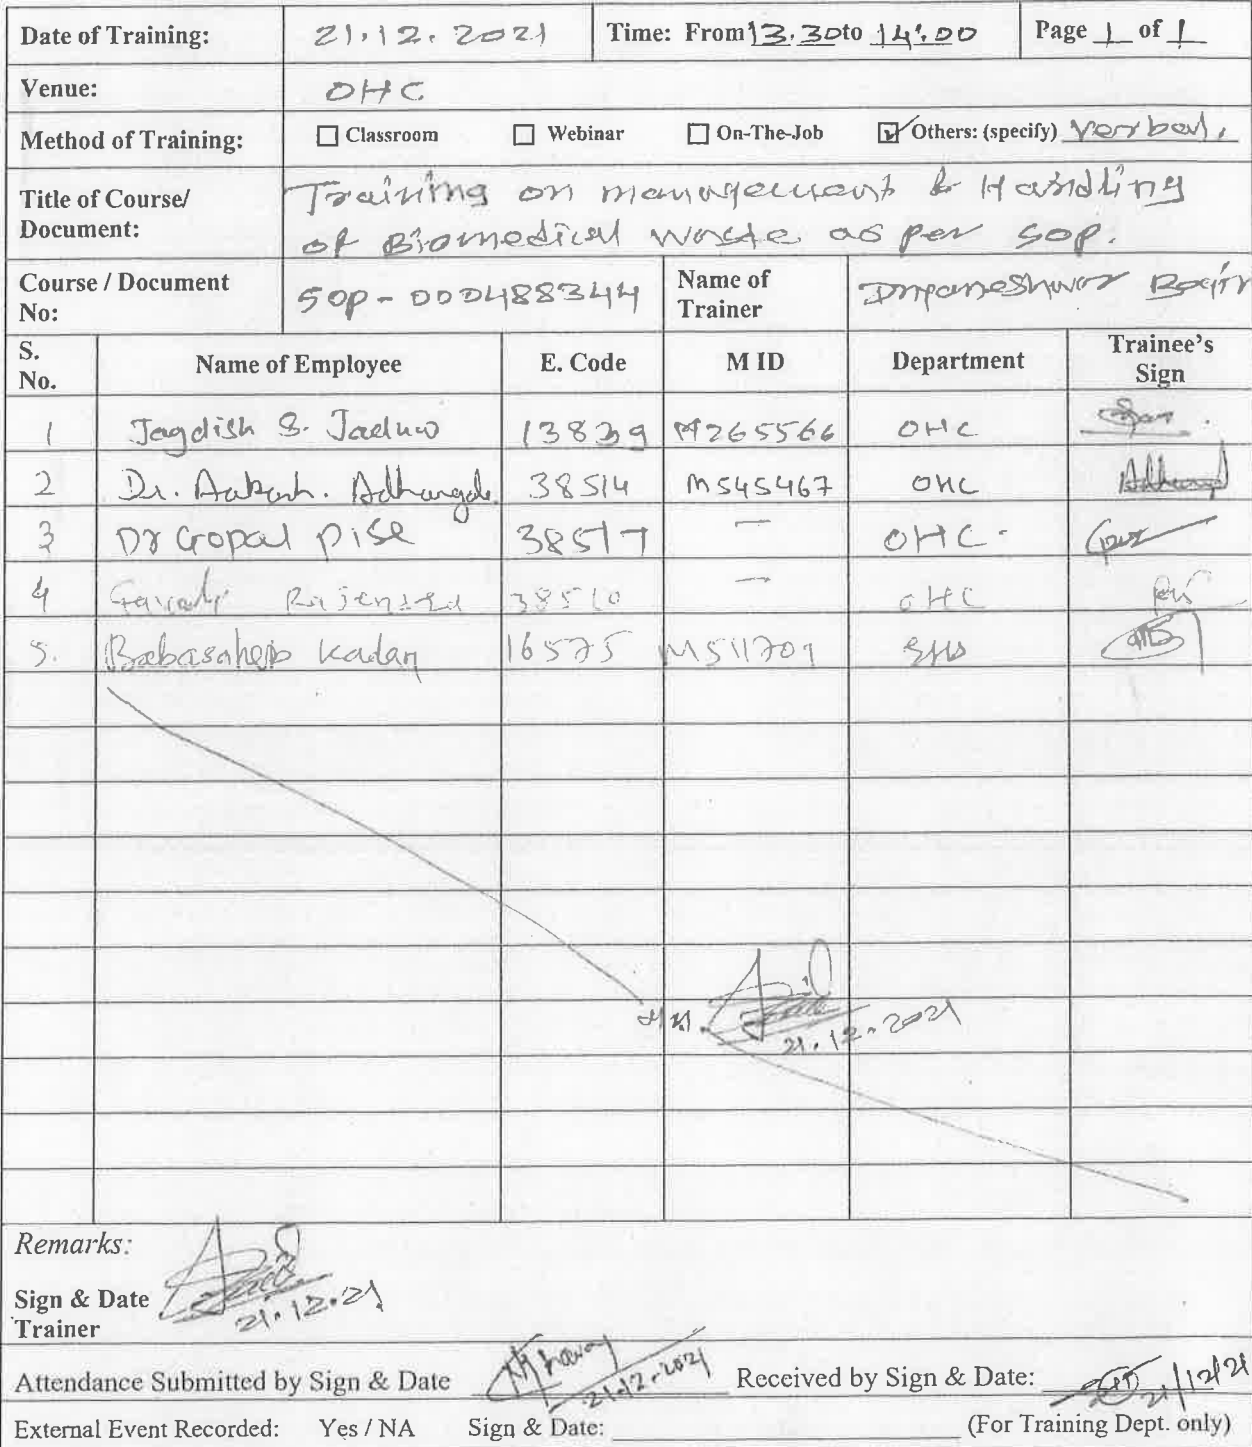 Date of Training: 21.12.2021 Time: From 13.30 to 14.00 Page 1 of 1
Venue: OHC
Method of Training: Classroom Webinar On-The-Job Others: (specify) Verbal.
Title of Course/ Document: Training on management & Handling
of Biomedical Waste as per SOP.
Course / Document No: SOP-000488344 Name of Trainer Dnyaneshwar
S. No. Name of Employee E. Code M ID Department Trainee's Sign
1 Jagdish S. Jadhav 13839 M265566 OHC
2 Dr. Aakash. Adhangale 38514 M545467 OHC
3 Dr Gopal Pise 38517 — OHC.
4 Rajendra 38510 — OHC
5. Babasaheb Kadam 16575 M511709
21.12.2021
Remarks:
Sign & Date
Trainer 21.12.21
Attendance Submitted by Sign & Date 21.12.2021 Received by Sign & Date: 21/12/21
External Event Recorded: Yes / NA Sign & Date: (For Training Dept. only)